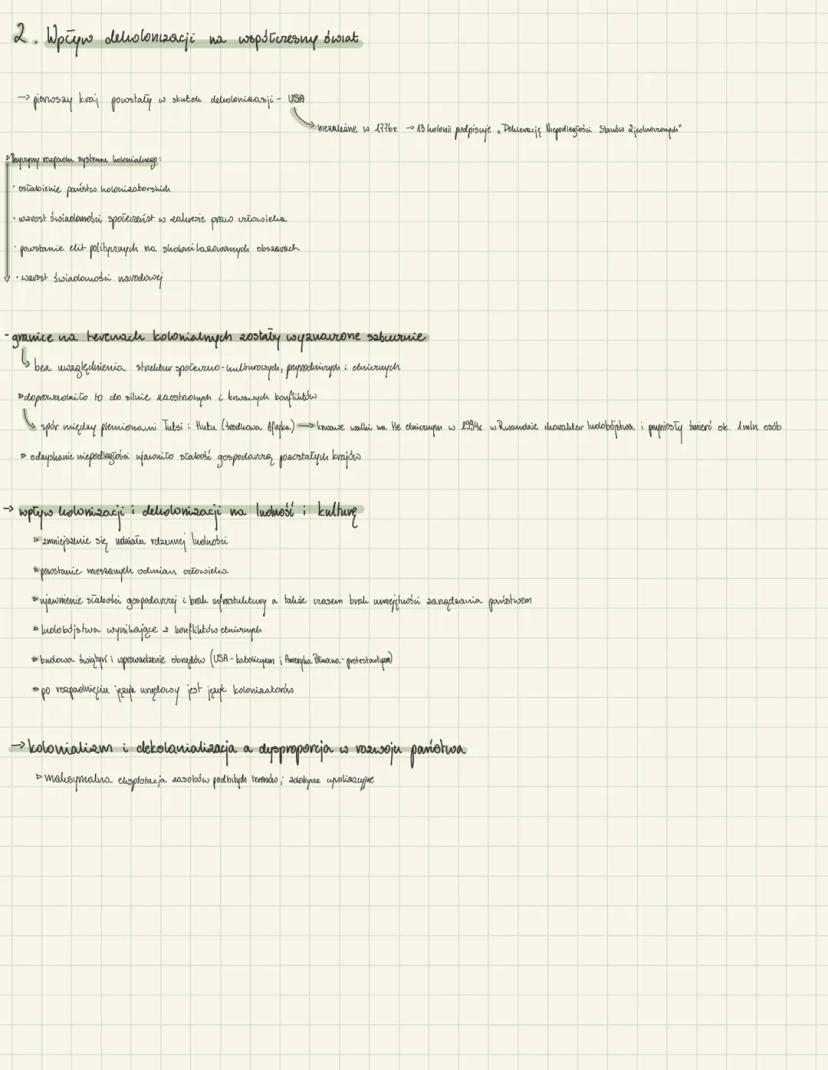 2. Wpływ dekolonizacji na współczesny świat
→ pierwszy kraj powstały w skutek dekolonizacji - USA
niezależne w 1776r → 13 kolonii podpisuje „Deklarację Niepodległości Stanów Zjednoczonych"
Przyczyny rozpadu systemu kolonialnego:
· osłabienie państw kolonizatorskich
· wzrost świadomości społeczeństw w zakresie praw człowieka
· powstanie elit politycznych na skolonizowanych obszarach
· wzrost świadomości narodowej
- granice na terenach kolonialnych zostały wyznaczone sztucznie
bez uwzględnienia struktur społeczno-kulturowych, przyrodniczych i etnicznych
doprowadziło to do silnie zaostrzonych i krwawych konfliktów
spór między plemionami Tutsi i Hutu (środkowa Afryka) → krwawe walki na tle etnicznym w 1994r w Rwandzie charakter ludobójstwa i przyniosły śmierć ok. 1mln osób
odzyskanie niepodległości ujawniło słabość gospodarczą pozostałych krajów
→ wpływ kolonizacji i dekolonizacji na ludność i kulturę
zmniejszenie się udziału rdzennej ludności
powstanie mieszanych odmian człowieka
ujawnienie słabości gospodarczej i brak infrastruktury a także czasem brak umiejętności zarządzania państwem
ludobójstwa wynikające z konfliktów etnicznych
budowa świątyń i wprowadzenie obrzędów (USA - katolicyzm ; Ameryka - protestantyzm)
po rozpadnięciu język urzędowy jest język kolonizatorów
→ kolonializm i dekolanializacja a dysproporcja w rozwoju państwa
maksymalna eksploatacja zasobów podbitych terenów ; zdobycze cywilizacyjne